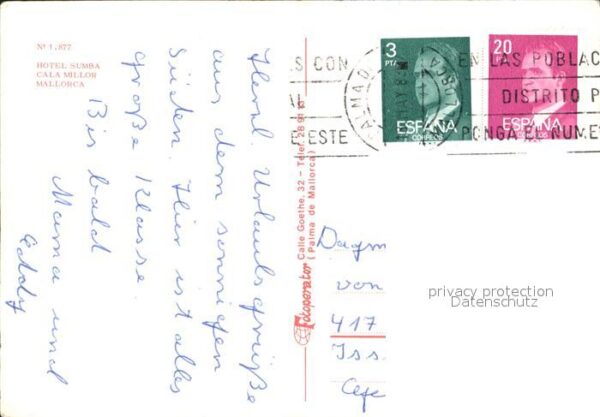 Nº 1.877
HOTEL SUMBA
CALA MILLOR
MALLORCA
Herzl Urlaubsgrüße
aus dem sonnigen
Süden. Hier ist alles
große Klasse.
Bis bald
Mama und
Fotoperator Calle Goethe, 32 - Telef. 28 91
(Palma de Mallorca)
3
PTA
ESPAÑA
CORREOS
20
ESPAÑA
CORREOS
S CON
E ESTE
EN LAS POBLAC
DISTRITO P
PONGA EL NUME
PALMA D
Dagm
von
417
Iss
privacy protection
Datenschutz